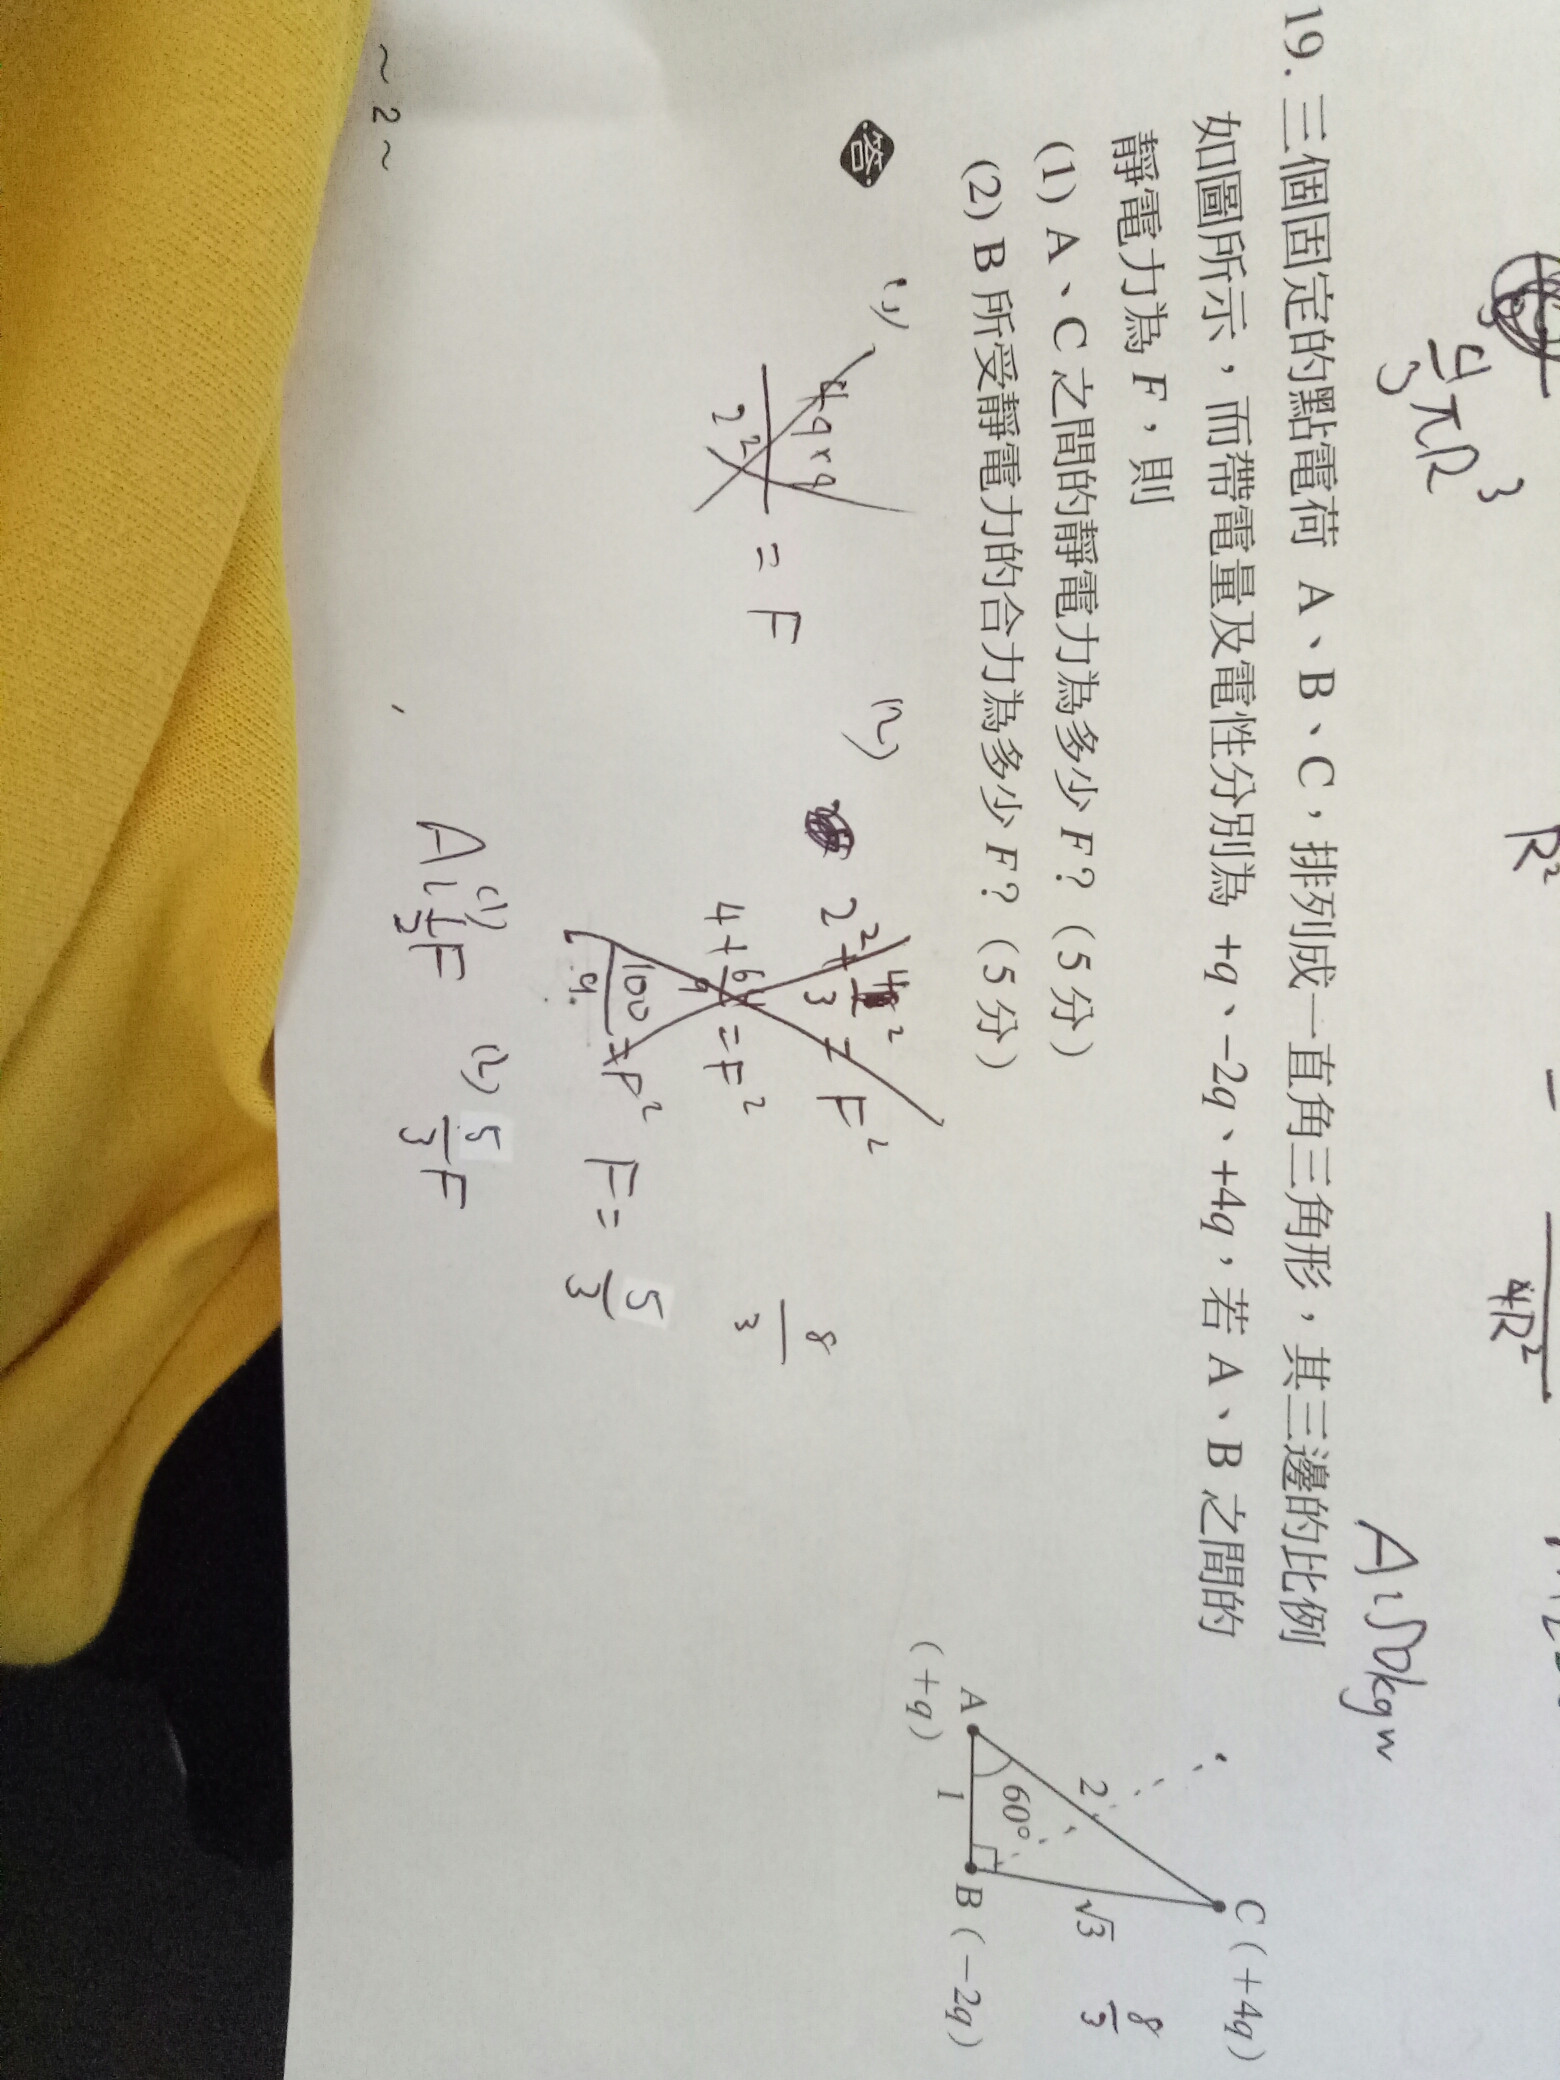 4/3 πR³
R²
4R²
A:50kgw
19. 三個固定的點電荷 A、B、C，排列成一直角三角形，其三邊的比例
如圖所示，而帶電量及電性分別為 +q、−2q、+4q，若 A、B 之間的
靜電力為 F，則
(1) A、C 之間的靜電力為多少 F？（5分）
(2) B 所受靜電力的合力為多少 F？（5分）
C（+4q）
2
√3
8/3
60°
A
1
B（−2q）
（+q）
答
(1)
4q×q / 2² = F
(2)
= F²
8/3
4+64/9 = F²
100/9 = F² F= 5/3
A: (1) 1/2 F (2) 5/3 F
~2~